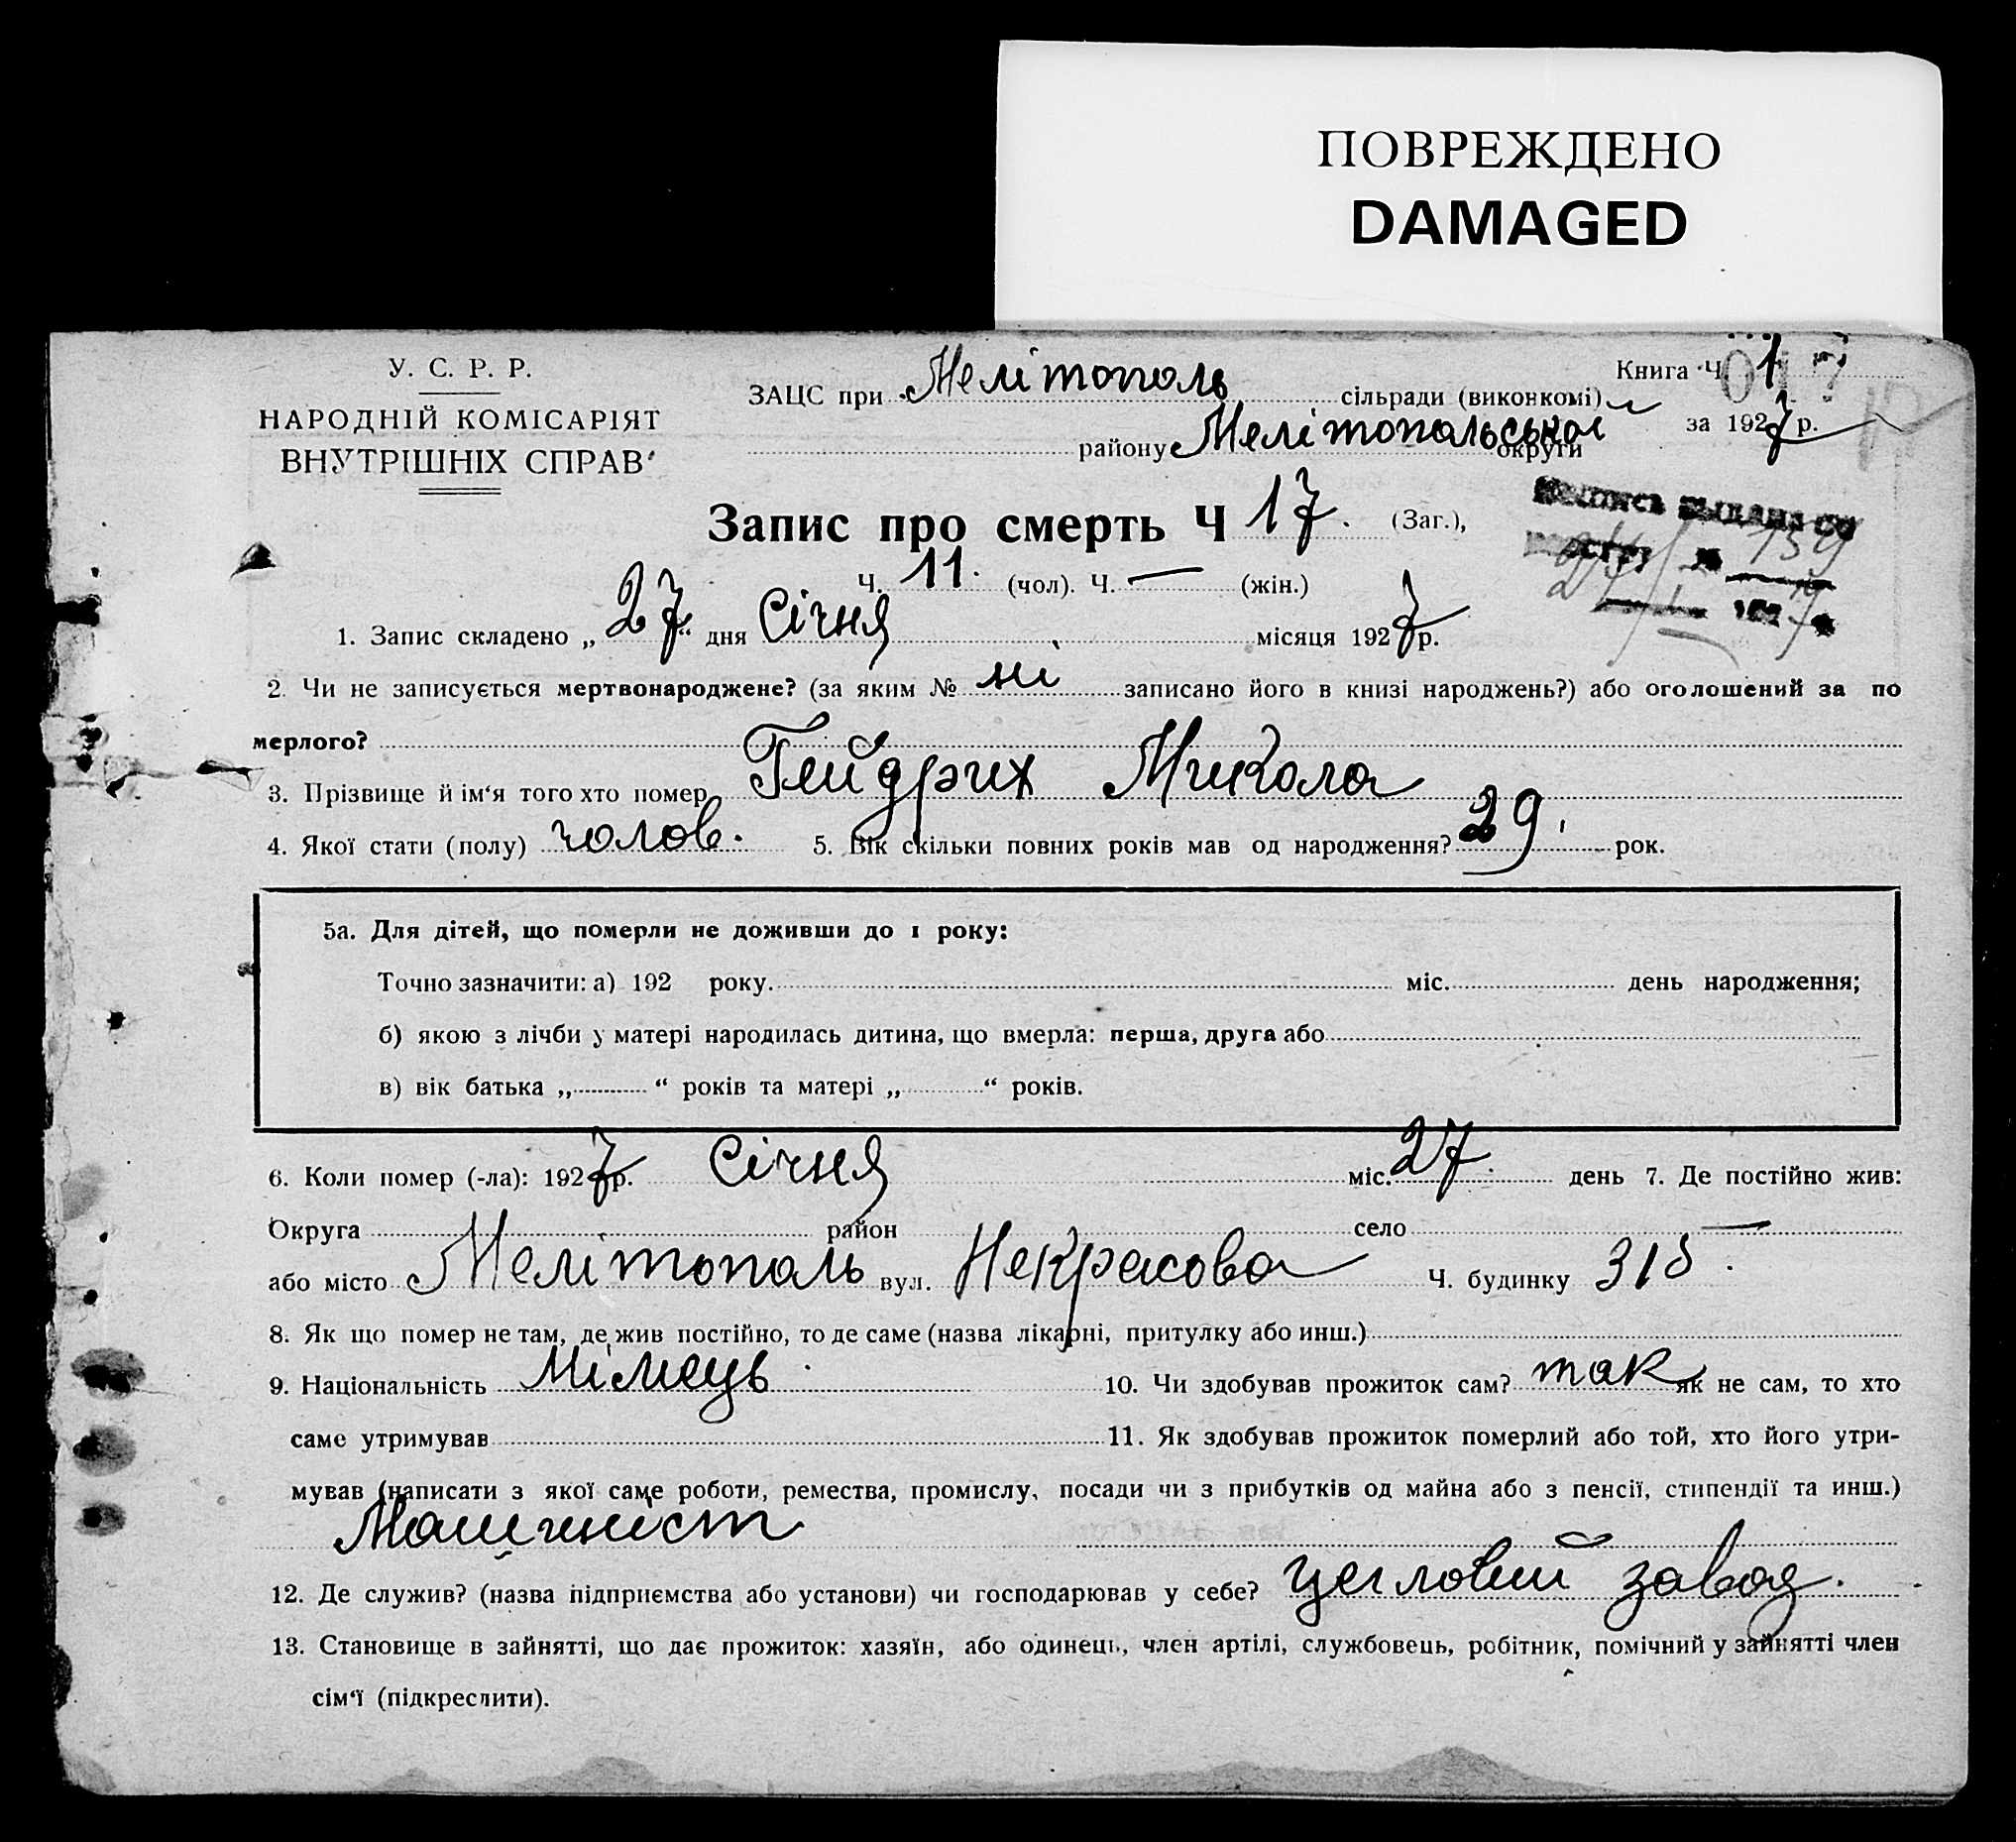 ПОВРЕЖДЕНО
DAMAGED
У. С. Р. Р.
НАРОДНІЙ КОМІСАРІЯТ
ВНУТРІШНІХ СПРАВ
Книга Ч. 1
ЗАЦС при Мелітополь сільради (виконкомі)
за 1927 р.
району Мелітопольської округи
Запис про смерть Ч 17. (Заг.),
Ч. 11. (чол). Ч. — (жін.)
выдана
159
1. Запис складено „27“ дня Січня місяця 1927 р.
2. Чи не записується мертвонароджене? (за яким № ні записано його в книзі народжень?) або оголошений за по
мерлого?
3. Прізвище й ім‘я того хто помер Гейдрих Микола
4. Якої стати (полу) чолов. 5. Вік скільки повних років мав од народження? 29. рок.
5а. Для дітей, що померли не доживши до 1 року:
Точно зазначити: а) 192 року. міс. день народження;
б) якою з лічби у матері народилась дитина, що вмерла: перша, друга або
в) вік батька „ “ років та матері „ “ років.
6. Коли помер (-ла): 1927 р. Січня міс. 27 день 7. Де постійно жив:
Округа район село —
або місто Мелітополь вул. Некрасова Ч. будинку
8. Як що помер не там, де жив постійно, то де саме (назва лікарні, притулку або инш.)
9. Національність Німець 10. Чи здобував прожиток сам? так як не сам, то хто
саме утримував 11. Як здобував прожиток померлий або той, хто його утри-
мував (написати з якої саме роботи, ремества, промислу, посади чи з прибутків од майна або з пенсії, стипендії та инш.)
Машинист
12. Де служив? (назва підприємства або установи) чи господарював у себе? цегловий завод.
13. Становище в зайнятті, що дає прожиток: хазяїн, або одинець, член артілі, службовець, робітник, помічний у зайнятті член
сім‘ї (підкреслити).